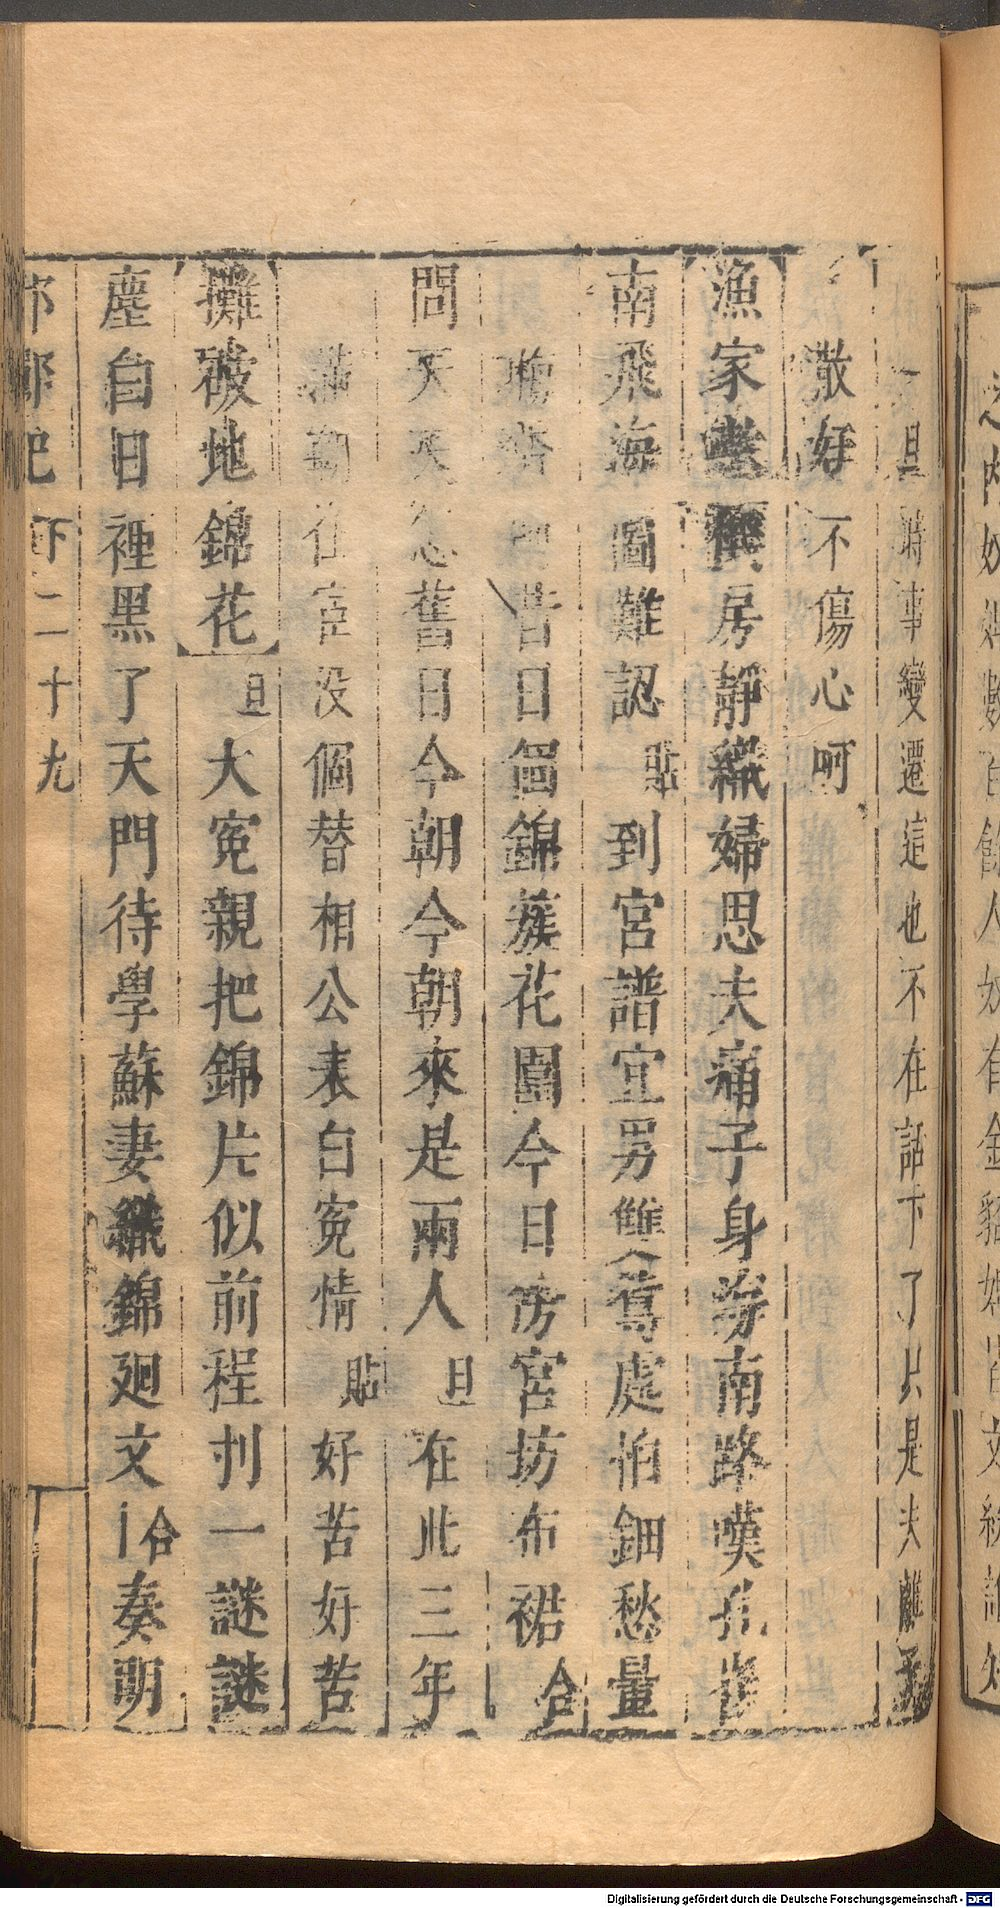 之內奴婢數百餘人奴有金貂婢皆文繡
一旦時事變遷這也不在話下了只是夫離子
散好不傷心呵
漁家機房靜織婦思夫痛子身海南路嘆孔雀
南飛海圖難認貼到宮譜宜男雙鴛處怕鈿愁量
昔日個錦簇花圍今日傍宮坊布裙合
問天天怎舊日今朝今朝來是兩人旦在此三年
滿朝仕宦沒個替相公表白冤情貼好苦好苦
攤破地錦花旦大冤親把錦片似前程刋一謎謎
塵白日裡黑了天門待學蘇妻織錦廻文合奏明
邯鄲記下二十九
Digitalisierung gefördert durch die Deutsche Forschungsgemeinschaft - DFG